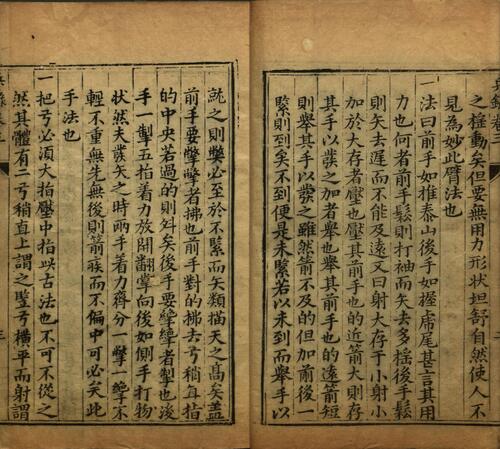 之橦動矣但要無用力形狀坦舒自然使人不
見為妙此臂法也
一法曰前手如推泰山後手如握虎尾甚言其用
力也何者前手鬆則打袖而矢去多搖後手鬆
則矢去遲而不能及遠又曰射大存于小射小
加於大存者壓也壓其前手也的近箭大則存
其手以發之加者舉也舉其前手也的遠箭短
則舉其手以發之雖然箭不及的但加前後一
緊則到矣不到便是未緊若以未到而舉手以
就之則弊必至於不緊而矢類描天之高矣蓋
前手要撆撆者拂也前手對的拂去弓稍直指
的中央若過的則斜矣後手要㩓㩓者掣也後
手一掣五指着力放開翻掌向後如側手打物
狀然夫發矢之時兩手着力齊分一撆一㩓不
輕不重無先無後則箭疾而不偏中可必矣此
手法也
一把弓必須大指壓中指此古法也不可不從之
然其體有二弓稍直上謂之竪弓橫平而射謂